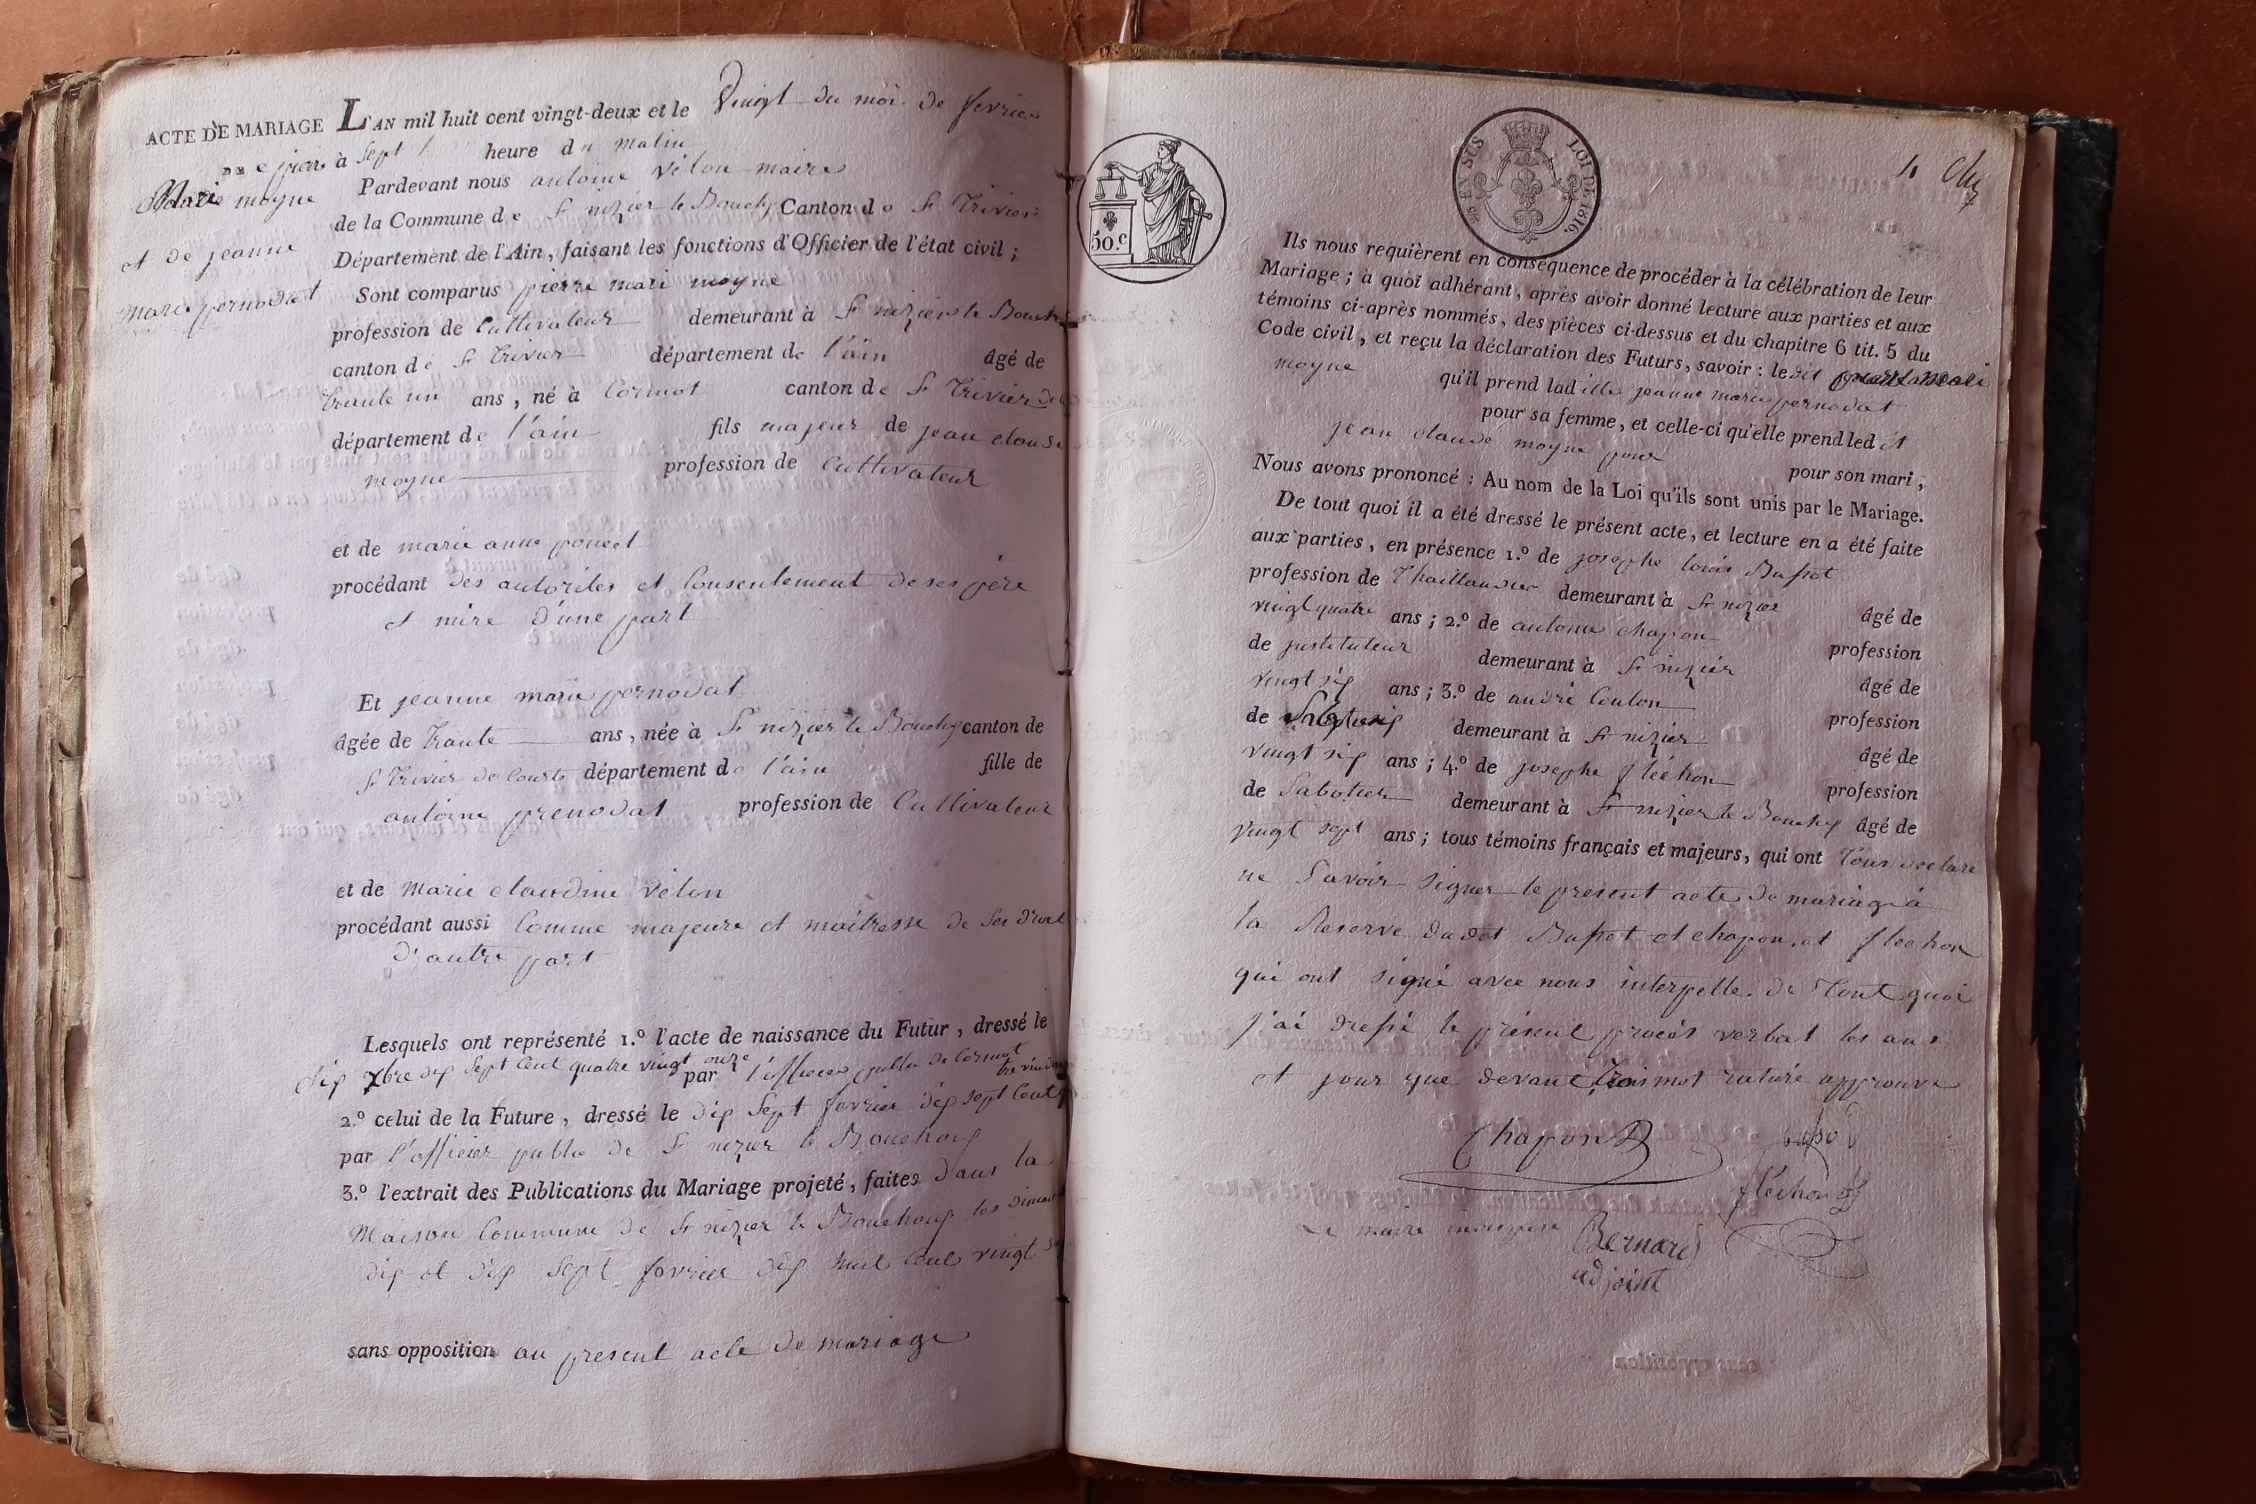 ACTE DE MARIAGE
DE pierre
Marie moyne
et de jeanne
marie pernodat
L'AN mil huit cent vingt-deux et le Vingt du moi de fevrier
à sept heure du matin
Pardevant nous antoine vélon maire
de la Commune de St nizier le Bouchy Canton de St Trivier
Département de l'Ain, faisant les fonctions d'Officier de l'état civil ;
Sont comparus pierre mari moyne
profession de Cultivateur demeurant à St nizier le Bouch
canton de St Trivier département de l'ain âgé de
trante un ans, né à Cormot canton de St Trivier de
département de l'ain fils majeur de jean clau
moyne profession de Cultivateur
et de marie anne poncet
procédant des autorites et Consentement de ses père
et mère d'une part
Et jeanne marie pernodat
âgée de trante ans, née à St nizier le Bouchy canton de
St Trivier de Courte département de l'ain fille de
antoine prenodat profession de Cultivateur
et de marie claudine vélon
procédant aussi Comme majeure et maitresse de ses droit
d'autre part
Lesquels ont représenté 1.º l'acte de naissance du Futur, dressé le
dix xbre dix sept cent quatre vingt onze par l'officier public de Cormot
2.º celui de la Future, dressé le dix sept fevrier dix sept cent
par l'officier public de St nizier le Bouchoux
3.º l'extrait des Publications du Mariage projeté, faites dans la
Maison Commune de St nizier le Bouchoux les diman
dix et dix sept fevrier dix huit cent vingt
sans opposition au present acte de mariage
50.c
EN SUS LOI DE 1816.
Ils nous requièrent en conséquence de procéder à la célébration de leur
Mariage ; à quoi adhérant, après avoir donné lecture aux parties et aux
témoins ci-après nommés, des pièces ci-dessus et du chapitre 6 tit. 5 du
Code civil, et reçu la déclaration des Futurs, savoir : le dit
moyne qu'il prend ladille jeanne marie pernodat
pour sa femme, et celle-ci qu'elle prend led it
jean claude moyne pour pour son mari,
Nous avons prononcé : Au nom de la Loi qu'ils sont unis par le Mariage.
De tout quoi il a été dressé le présent acte, et lecture en a été faite
aux parties, en présence 1.º de josephe louis Bussot
profession de Thaillandier demeurant à St nizier âgé de
vingt quatre ans ; 2.º de antoine chapon profession
de justituteur demeurant à St nizier âgé de
vingt six ans ; 3.º de andré Coulon profession
de demeurant à St nizier âgé de
vingt six ans ; 4.º de josephe fléchon profession
de Sabotier demeurant à St nizier le Bouchy âgé de
vingt sept ans ; tous témoins français et majeurs, qui ont tous declare
ne Savoir signer le present acte de mariage à
la Reserve dudot Bussot et chapon et flechon
qui ont signé avec nous interpelle. De tout quoi
j'ai dressé le présent procès verbal les ans
et jour que devant trois mot raturé approuvé
Chapon
Busso
flechon
Le maire
Bernard
adjoint